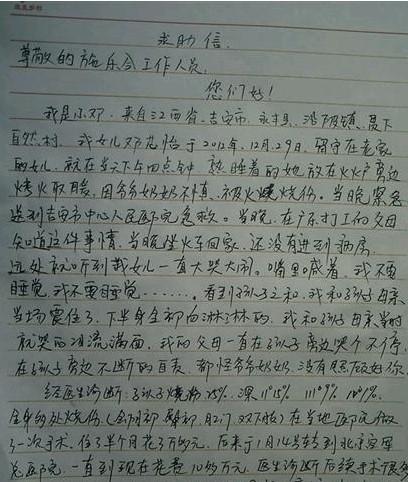 求助信.
尊敬的施乐会工作人员.
您们好!
我是小邓.来自江西省.吉安市.永丰县.潭城镇.聂下
自然村.我女儿邓芷怡于2012年.12月.29日.留守在老家
的女儿.就在当天下午四点钟 熟睡着的她放在火炉旁边
烤火取暖.因爷爷奶奶不慎.被火烧伤.当晚紧急
送到吉安市中心人民医院急救。当晚.在广东打工的父母
知道这件事情.当晚坐火车回家.还没有进到病房
远处就听到我女儿一直大哭大闹。嘴里喊着.我不要
睡觉.我不要睡觉.........看到孩子之和.我和孩子母亲
当场震住了.下半身全部白淋淋的.我和孩子母亲当时
就哭的泪流满面.我的父母一直在孩子旁边哭个不停.
在孩子旁边不断的自责.都怪爷爷奶奶.没有照顾好你.
经医生诊断:孩子烧伤25%.深II°15% III°9% IV°1%.
全身多处烧伤(会阴部 臀部.肛门.双下肢)在当地医院做
了一次手术.住了半个月花3万多元.后来于1月14号转到北京空军
总医院.一直到现在花费10多万元.医生诊断后续手术很多